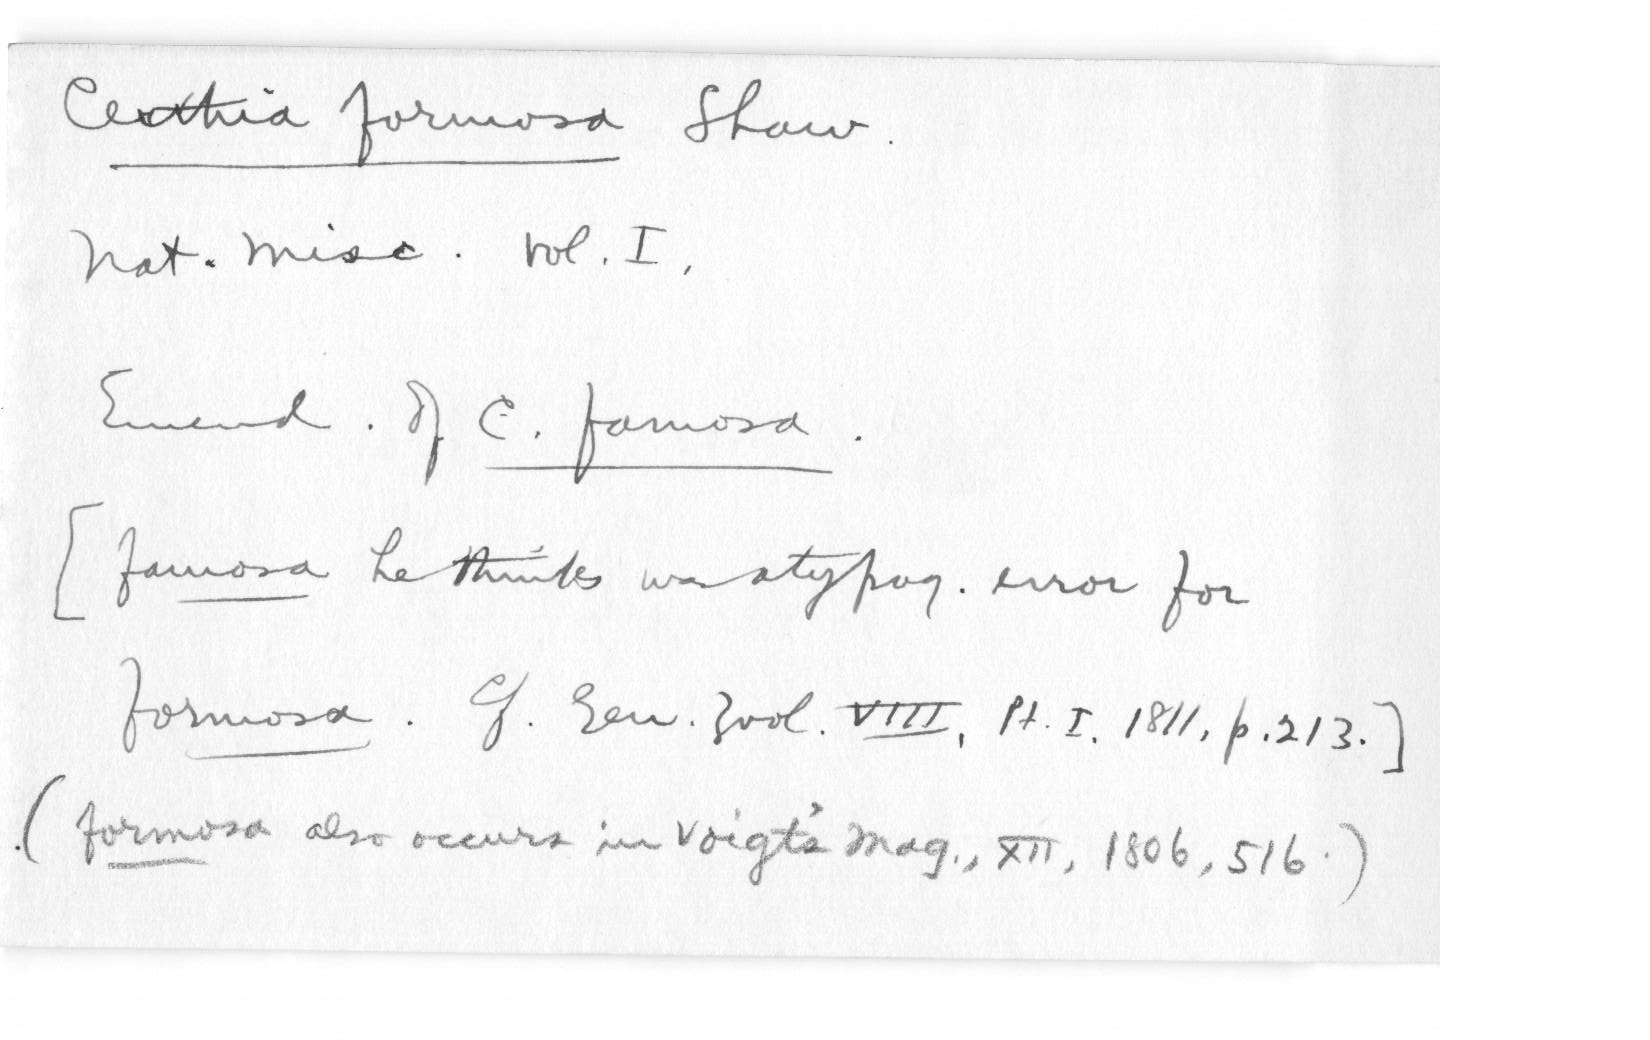 Certhia formosa Shaw.
Nat. Misc. Vol. I,
Emend. of C. famosa.
[famosa he thinks was a typog. error for
formosa. Cf. Gen. Zool. VIII, Pt. I. 1811, p. 213.]
(formosa also occurs in Voigt's Mag., XII, 1806, 516.)